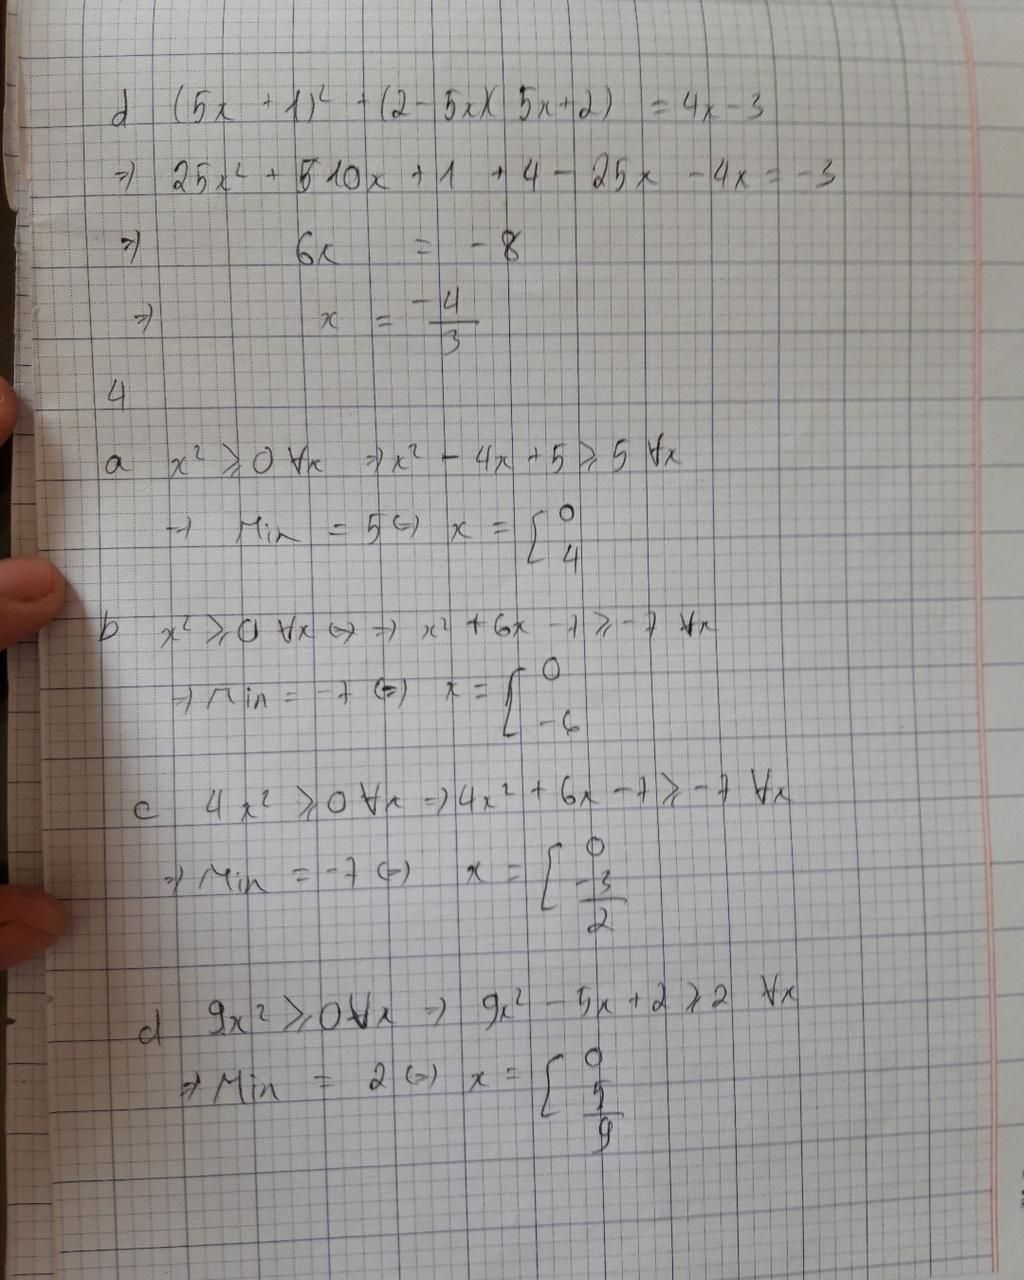 d (5x + 1)² + (2 - 5x)(5x+2) = 4x - 3
⇒ 25x² + 510x + 1 + 4 - 25x - 4x = -3
⇒ 6x = -8
⇒ x = -4/3
4
a x² ≥ 0 ∀x ⇒ x² - 4x + 5 ≥ 5 ∀x
⇒ Min = 5 ⇔ x = [ 0
4
b x² ≥ 0 ∀x ⇔ ⇒ x² + 6x - 7 ≥ -7 ∀x
⇒ Min = -7 ⇔ x = [ 0
-6
c 4x² ≥ 0 ∀x ⇒ 4x² + 6x - 7 ≥ -7 ∀x
⇒ Min = -7 ⇔ x = [ 0
-3/2
d 9x² ≥ 0 ∀x ⇒ 9x² - 5x + 2 ≥ 2 ∀x
⇒ Min = 2 ⇔ x = [ 0
5/9